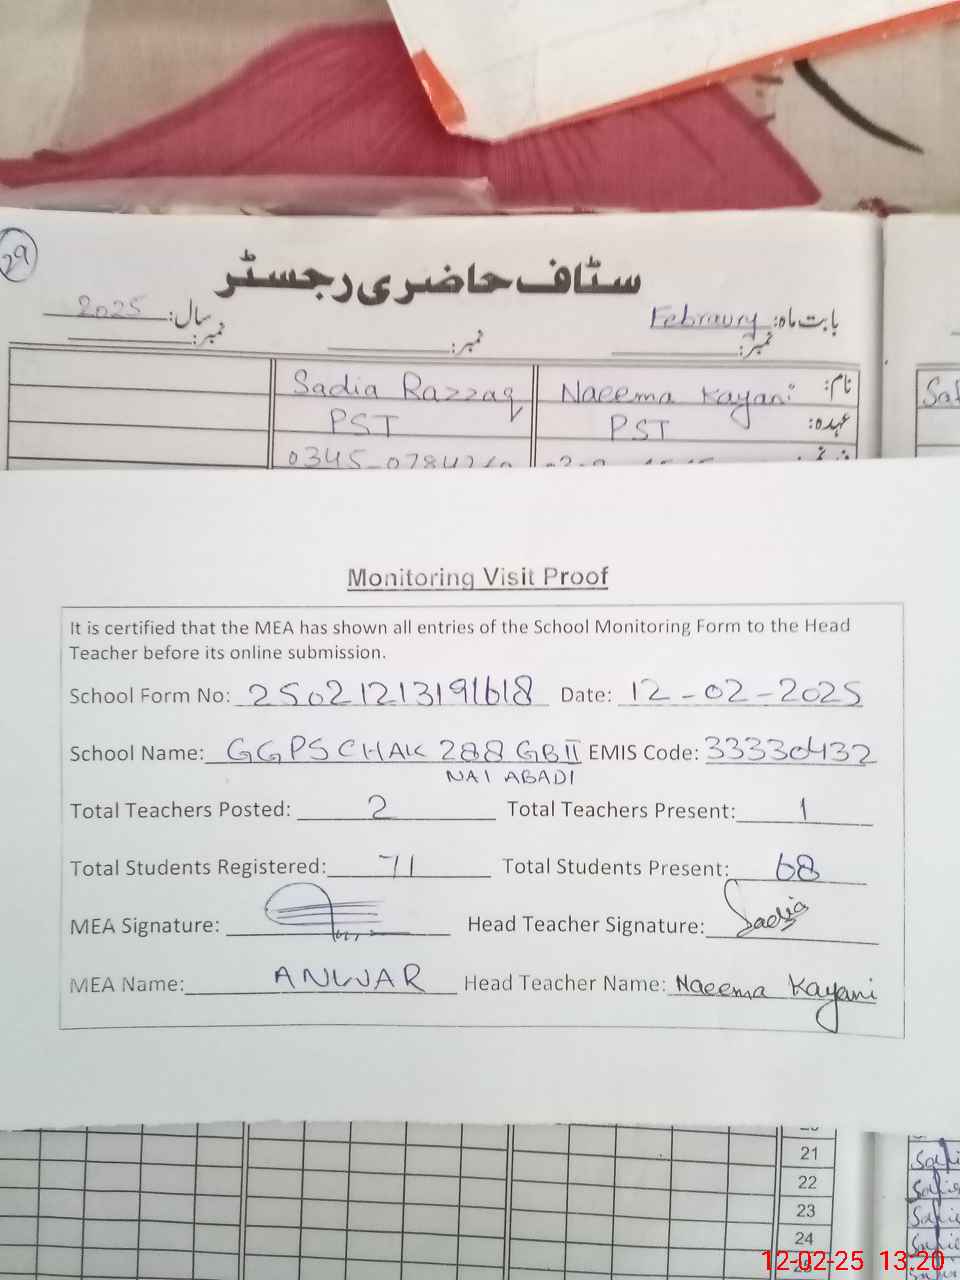 29
سٹاف حاضری رجسٹر
بابت ماہ: Febraury سال: 2025
نمبر: نمبر: نمبر:
نام: Naeema Kayani Sadia Razzaq
عہدہ: PST PST
Monitoring Visit Proof
It is certified that the MEA has shown all entries of the School Monitoring Form to the Head
Teacher before its online submission.
School Form No: 25021213191618 Date: 12-02-2025
School Name: GGPS CHAK 288 GB II EMIS Code: 33330432
NAI ABADI
Total Teachers Posted: 2 Total Teachers Present: 1
Total Students Registered: 71 Total Students Present: 68
MEA Signature: Head Teacher Signature: Sadia
MEA Name: ANWAR Head Teacher Name: Naeema Kayani
21
22
23
24
25
12-02-25 13:20